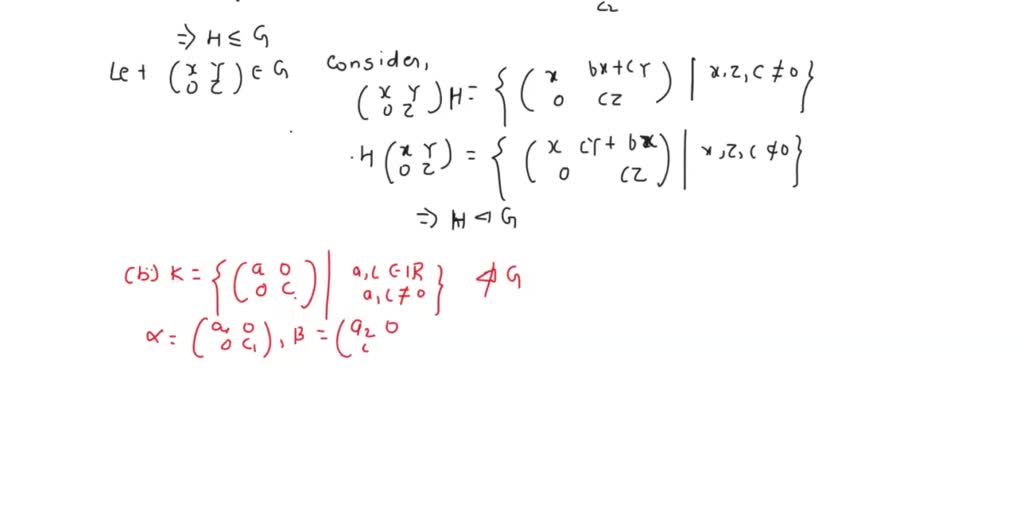 c2
⇒ H ≤ G
Let (x Y / 0 Z) ∈ G Consider,
(x Y / 0 Z) H = { (x bx+cY / 0 cZ) | x,z,c ≠ 0 }
. H (x Y / 0 Z) = { (x cY + bx / 0 cZ) | x,z,c ≠ 0 }
⇒ H ⊲ G
(b) K = { (a 0 / 0 c) | a,c ∈ IR a,c ≠ 0 } ⋪ G
α = (a1 0 / 0 c1), B = (a2 0